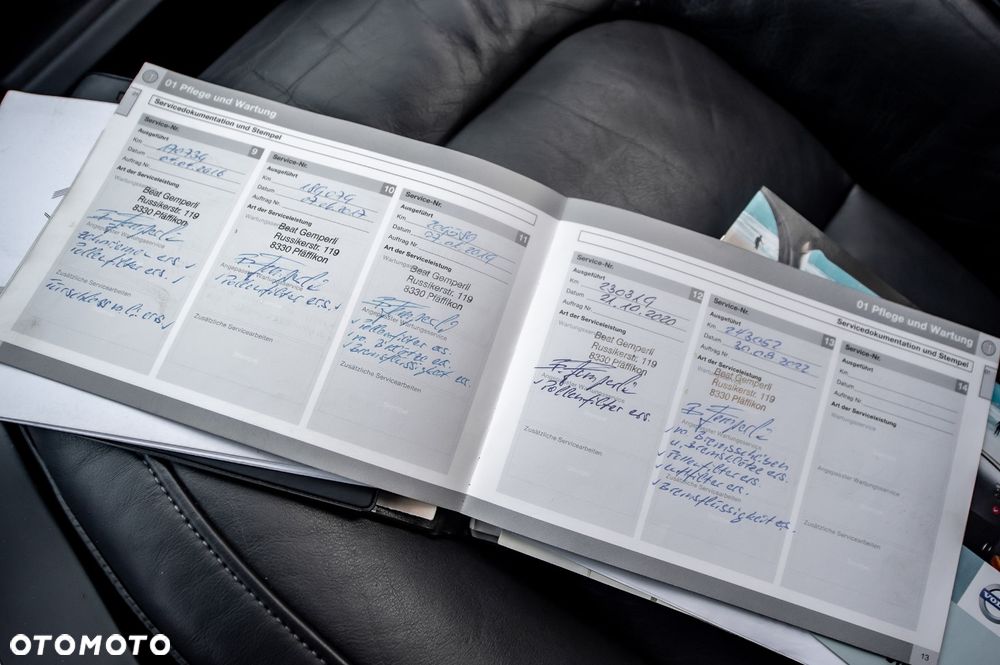 01 Pflege und Wartung
Servicedokumentation und Stempel
Service-Nr.
9
Ausgeführt
Km 190734
Datum
Auftrag Nr.
Art der Serviceleistung
Wartungsservice
Beat Gemperli
Russikerstr. 119
8330 Pfäffikon
Angepasster Wartungsservice
Pollenfilter ers. ✓
Zusätzliche Servicearbeiten
Service-Nr.
10
Ausgeführt
Km
Datum
Auftrag Nr.
Art der Serviceleistung
Wartungsservice
Beat Gemperli
Russikerstr. 119
8330 Pfäffikon
Angepasster Wartungsservice
✓ Pollenfilter ers. ✓
Zusätzliche Servicearbeiten
Service-Nr.
11
Ausgeführt
Km
Datum
Auftrag Nr.
Art der Serviceleistung
Wartungsservice
Beat Gemperli
Russikerstr. 119
8330 Pfäffikon
Angepasster Wartungsservice
✓ Pollenfilter ers.
✓ Bremsflüssigkeit ers.
Zusätzliche Servicearbeiten
01 Pflege und Wartung
Servicedokumentation und Stempel
Service-Nr.
12
Ausgeführt
Km 230319
Datum 21.10.2020
Auftrag Nr.
Art der Serviceleistung
Wartungsservice
Beat Gemperli
Russikerstr. 119
8330 Pfäffikon
Angepasster Wartungsservice
✓ Pollenfilter ers.
Zusätzliche Servicearbeiten
Service-Nr.
13
Ausgeführt
Km 243052
Datum 30.08.2022
Auftrag Nr.
Art der Serviceleistung
Beat Gemperli
Russikerstr. 119
8330 Pfäffikon
Angepasster Wartungsservice
Bremsscheiben
u. Bremsklötze ers.
✓ Pollenfilter ers.
✓ Luftfilter ers.
Zusätzliche Servicearbeiten
✓ Bremsflüssigkeit ers.
Service-Nr.
14
Ausgeführt
Km
Datum
Auftrag Nr.
Art der Serviceleistung
Wartungsservice
Angepasster Wartungsservice
Zusätzliche Servicearbeiten
13
OTOMOTO